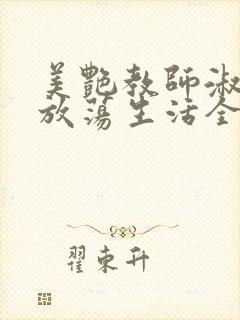 美艷教師淑
放蕩生活全
翟東升